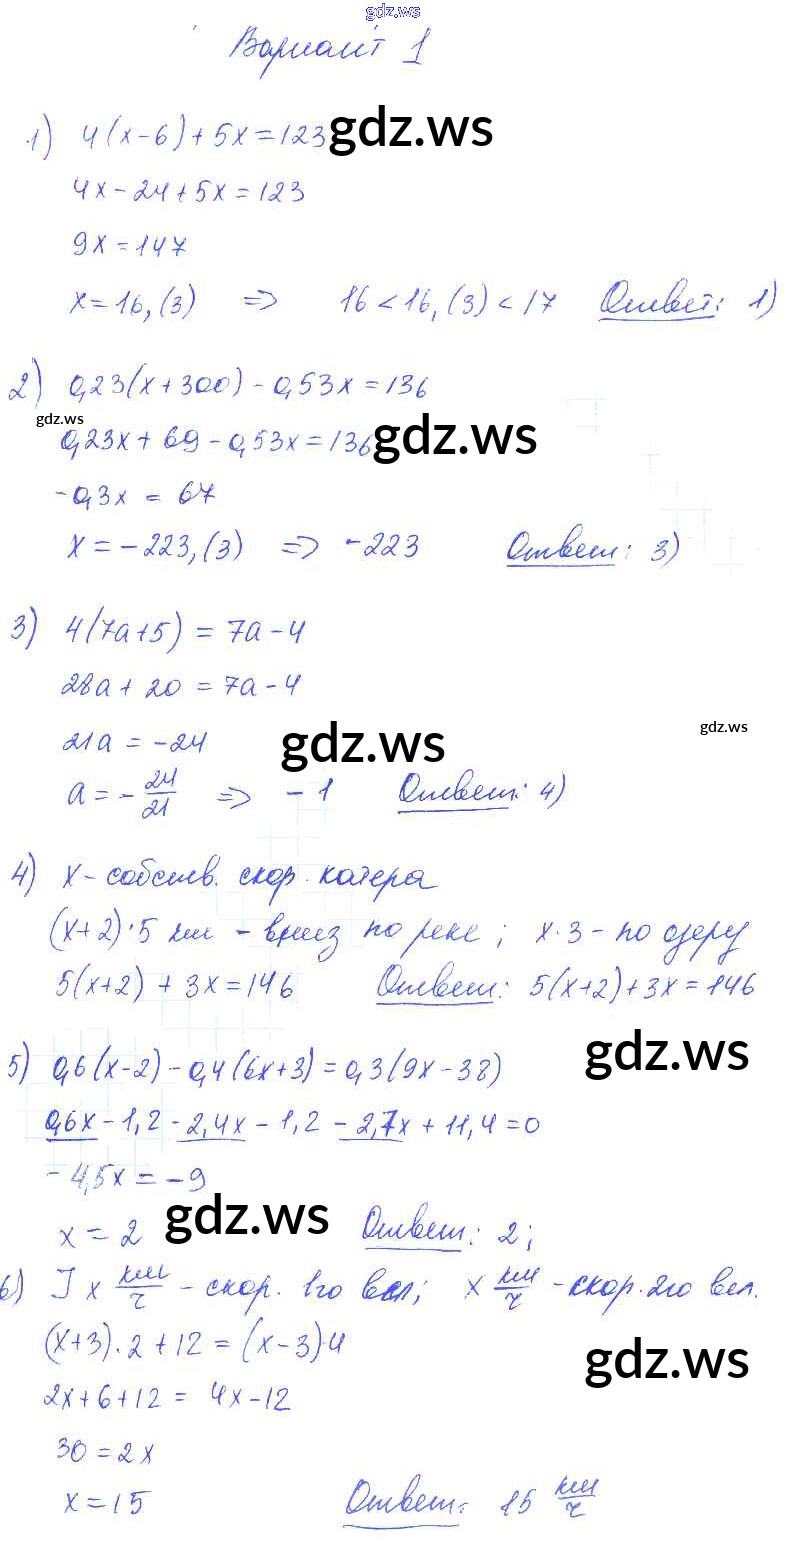 gdz.ws
Вариант 1
1) 4(x-6)+5x=123 gdz.ws
4x-24+5x=123
9x=147
x=16,(3) => 16<16,(3)<17 Ответ: 1)
2) 0,23(x+300)-0,53x=136
gdz.ws
0,23x+69-0,53x=136 gdz.ws
-0,3x = 67
x=-223,(3) => -223 Ответ: 3)
3) 4(7a+5) = 7a-4
28a+20 = 7a-4
gdz.ws
21a = -24 gdz.ws
a = -24/21 => -1 Ответ: 4)
4) x-собств. скор. катера
(x+2)·5 км - вниз по реке; x·3 - по озеру
5(x+2) + 3x=146 Ответ: 5(x+2)+3x=146
gdz.ws
5) 0,6(x-2)-0,4(6x+3)=0,3(9x-38)
0,6x-1,2-2,4x-1,2-2,7x+11,4=0
-4,5x=-9
x=2 gdz.ws Ответ: 2;
6) I x км/ч - скор. 1го вел; x км/ч - скор. 2го вел.
(x+3)·2+12=(x-3)·4
gdz.ws
2x+6+12= 4x-12
30=2x
x=15 Ответ: 15 км/ч